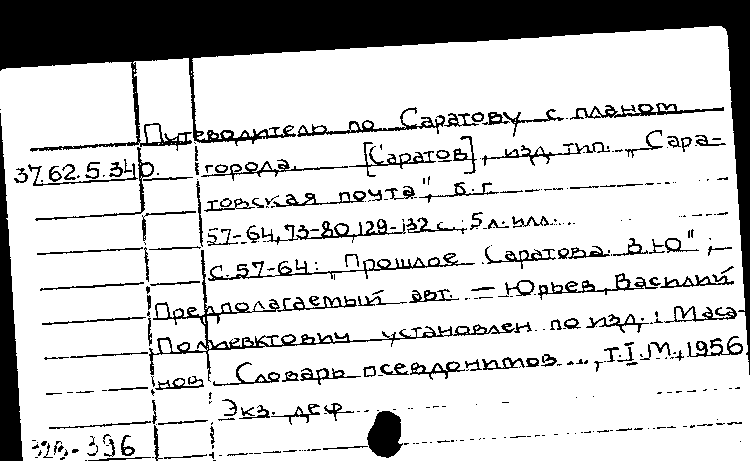 Путеводитель по Саратову с планом
37.62.5.340. города. [Саратов], изд. тип. „Сара-
товская почта", б.г.
57-64, 73-80, 129-132 с., 5 л. илл.
С. 57-64: „Прошлое Саратова. В.Ю";
Предполагаемый авт. — Юрьев, Василий
Полиевктович установлен по изд.: Маса-
нов. Словарь псевдонимов..., т. I. М., 1956
Экз. деф.
-396